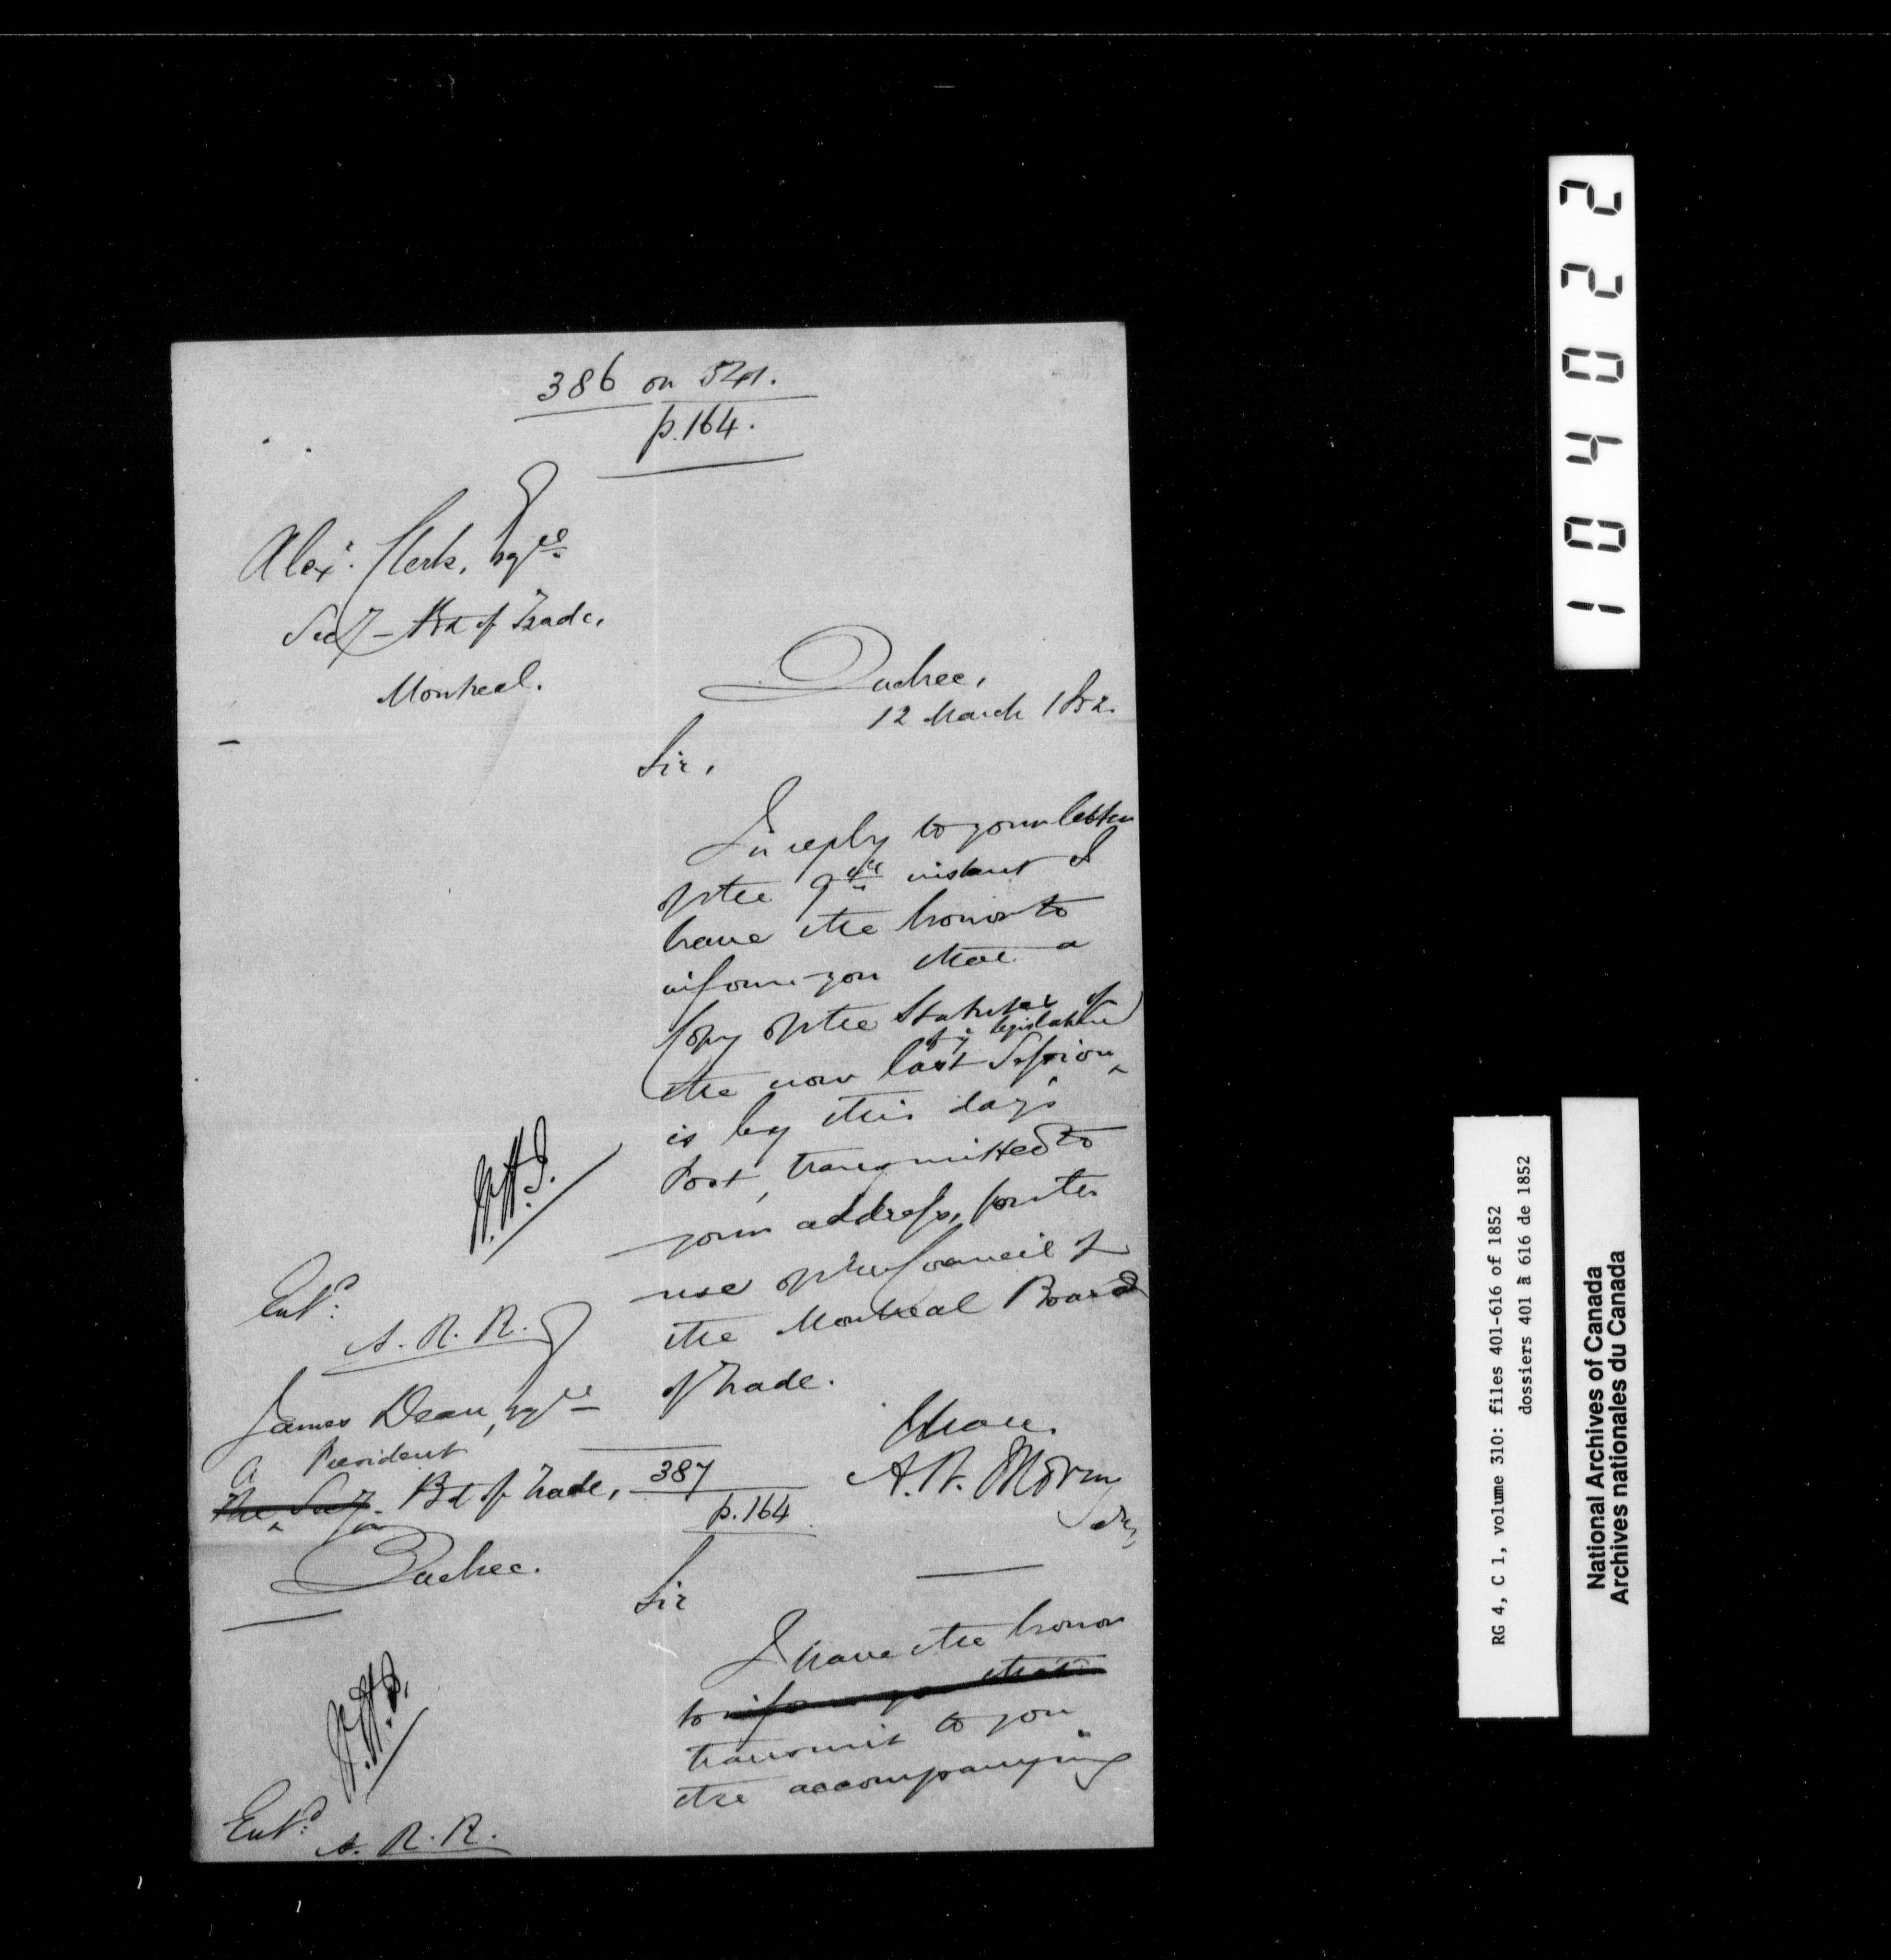 386 on 541.
p. 164.
Alexr. Clerk, Esqre
Secy - Bd of Trade,
Montreal.
Quebec,
12 March 1852.
Sir,
In reply to your letter
of the 9th instant I
have the honor to
inform you that a
Copy of the Statutes of
the now last Session of ye legislature
is by this day's
Post, transmitted to
your address, for the
use of the Council of
the Montreal Board
of Trade.
I have.
A. N. Morin
Secy
Entd.
A. R. R.
387
p. 164
James Dean, Esqre
President
The Secy. Bd of Trade,
Quebec.
Sir
I have the honor
to inform you that
transmit to you
the accompanying
Entd.
A. R. R.
104022
RG 4, C 1, volume 310: files 401-616 of 1852
dossiers 401 à 616 de 1852
National Archives of Canada
Archives nationales du Canada